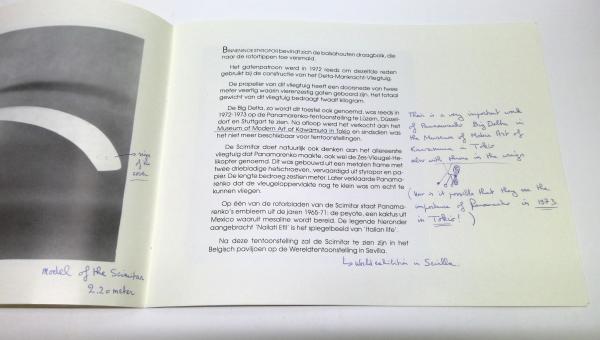 BINNENIN DE STYROFOR bevindt zich de balsahouten draagbalk, die
naar de rotortippen toe versmald.
Het gatenpatroon werd in 1972 reeds om dezelfde reden
gebruikt bij de constructie van het Delta-Mankracht-Vliegtuig.
De propeller van dit vliegtuig heeft een doorsnede van twee
meter veertig waarin vierenzestig gaten geboord zijn. Het totaal
gewicht van dit vliegtuig bedraagt twaalf kilogram.
De Big Delta, zo wordt dit toestel ook genoemd, was reeds in
1972-1973 op de Panamarenko-tentoonstelling te Luzern, Düssel-
dorf en Stuttgart te zien. Na afloop werd het verkocht aan het
Museum of Modern Art of Kawamura in Tokio en sindsdien was
het niet meer beschikbaar voor tentoonstellingen.
De Scimitar doet natuurlijk ook denken aan het allereerste
vliegtuig dat Panamarenko maakte, ook wel de Zes-Vleugel-He-
likopter genoemd. Dit was gebouwd uit een metalen frame met
twee driebladige hefschroeven, vervaardigd uit styropor en pa-
pier. De lengte bedroeg zestien meter. Later verklaarde Panama-
renko dat de vleugeloppervlakte nog te klein was om echt te
kunnen vliegen.
Op één van de rotorbladen van de Scimitar staat Panama-
renko's embleem uit de jaren 1965-71: de peyote, een kaktus uit
Mexico waaruit mesaline wordt bereid. De legende hieronder
aangebracht 'Nailati Efil' is het spiegelbeeld van 'Italian life'.
Na deze tentoonstelling zal de Scimitar te zien zijn in het
Belgisch paviljoen op de Wereldtentoonstelling in Sevilla.
↳ World exhibition in Sevilla.
This is a very important work
of Panamarenko Big Delta in
the Museum of Modern Art of
Kawamura in Tokio
also with in the wings
(How is it possible that they see the
importance of Panamarenko in 1973
in Tokio! )
of the
model of the Scimitar
2.20 meter